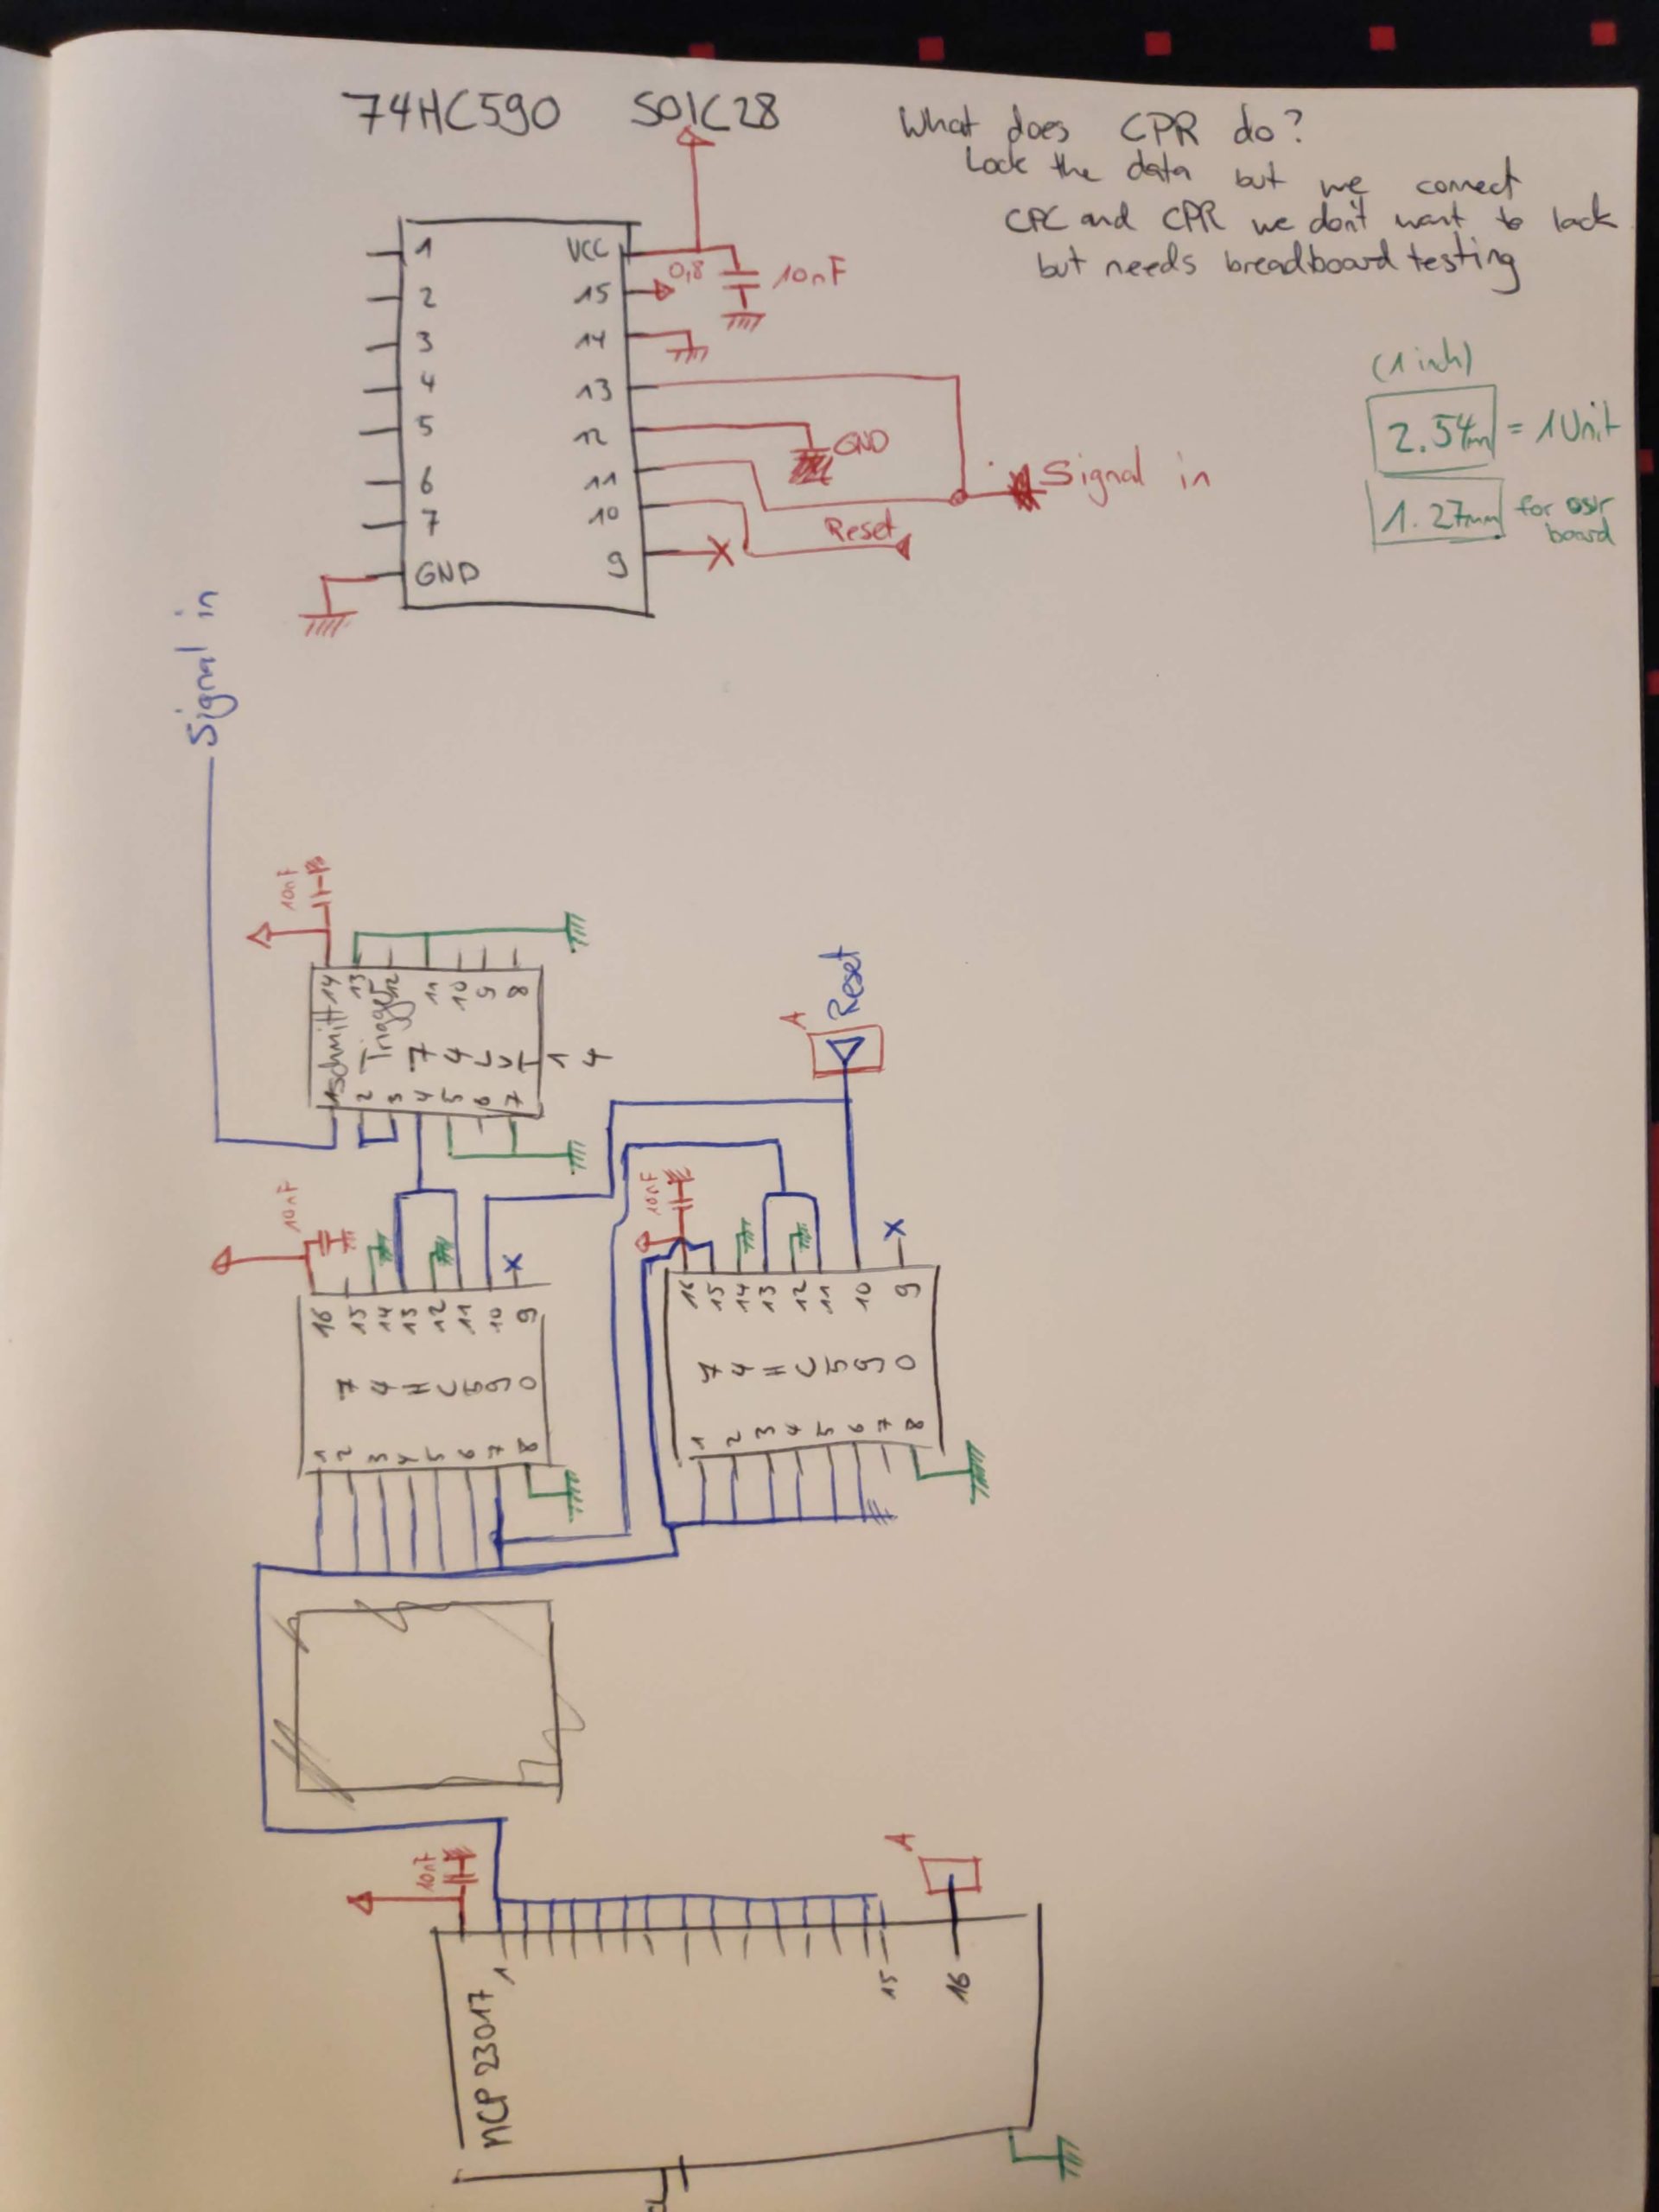 74HC590 SOIC28
What does CPR do?
Lock the data but we connect
CPC and CPR we don't want to lock
but needs breadboard testing
1 VCC
2 15
3 14
4 13
5 12
6 11
7 10
GND 9
0,8
10nF
GND
Signal in
Reset
(1 inh)
2.54mm = 1 Unit
1.27mm for our
board
Signal in
10nF
14 13 12 11 10 9 8
Schmitt
Trigger
74LVT14
1 2 3 4 5 6 7
A
Reset
10nF
X
16 15 14 13 12 11 10 9
74HC590
1 2 3 4 5 6 7 8
10nF
X
16 15 14 13 12 11 10 9
74HC590
1 2 3 4 5 6 7 8
10nF
A
1 15 16
MCP 23017